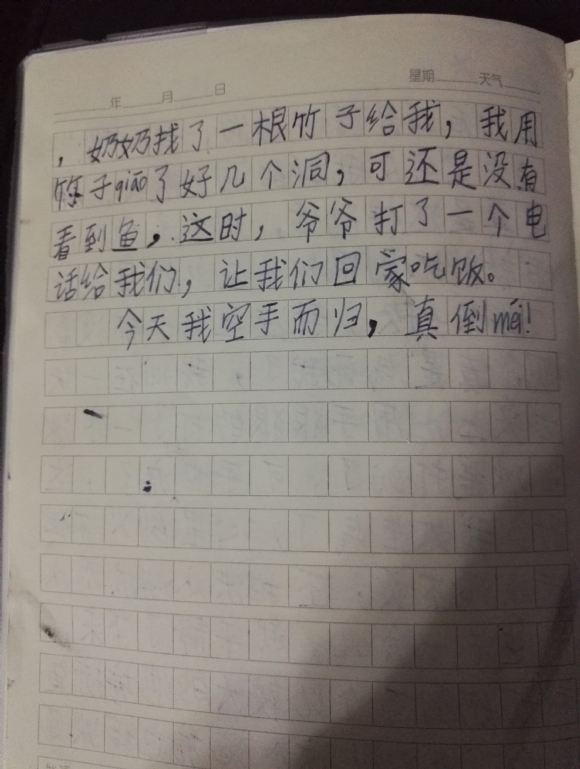 年 月 日 星期 天气
，奶奶找了一根竹子给我，我用
竹子qiāo了好几个洞，可还是没有
看到鱼，这时，爷爷打了一个电
话给我们，让我们回家吃饭。
今天我空手而归，真倒méi！